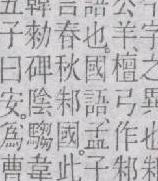 字之異也邾
公羊、檀弓作邾
語也。國語、孟子
言春秋邾國。此
韓勑碑陰騶韋
五子曰安。為曹